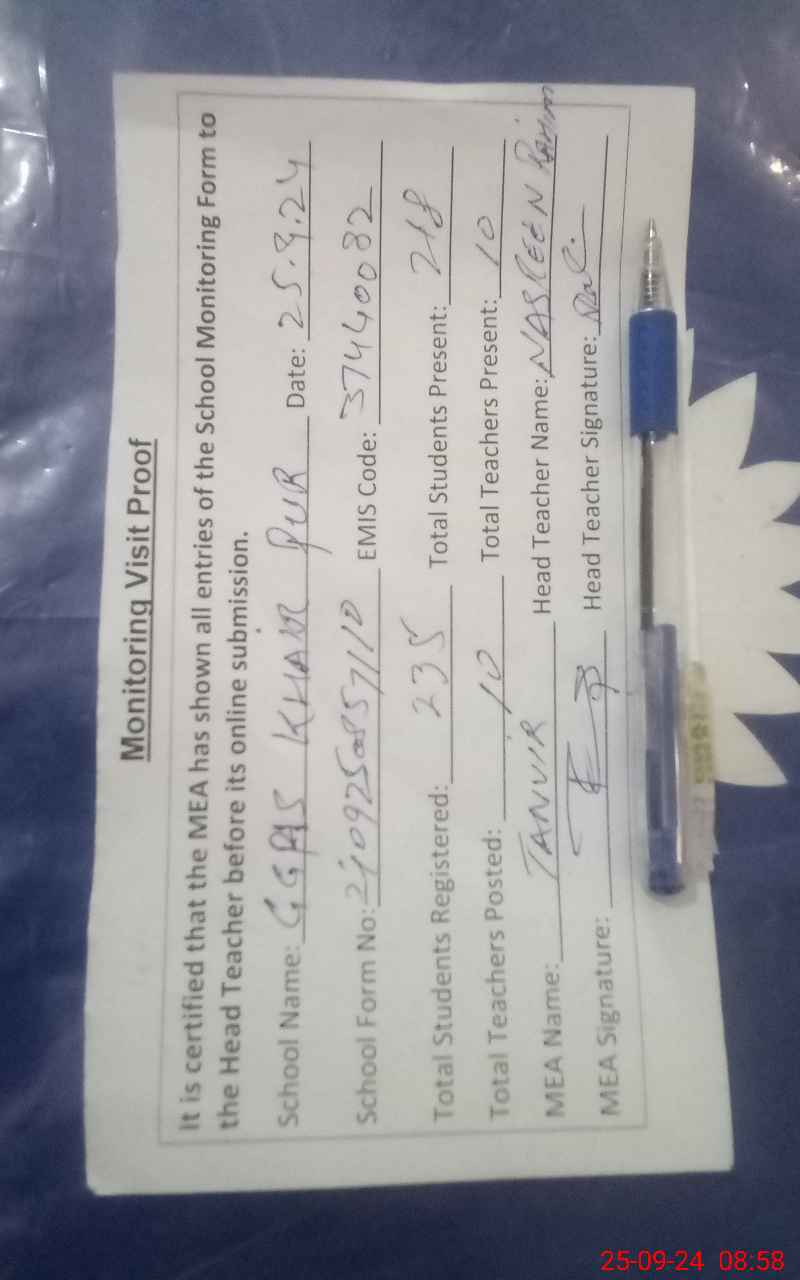 Monitoring Visit Proof
It is certified that the MEA has shown all entries of the School Monitoring Form to
the Head Teacher before its online submission.
School Name: GGPS KHAN PUR Date: 25.9.24
School Form No: EMIS Code: 37440082
Total Students Registered: 235 Total Students Present: 218
Total Teachers Posted: 10 Total Teachers Present: 10
MEA Name: TANVIR Head Teacher Name: NASREEN
MEA Signature: Head Teacher Signature:
25-09-24 08:58